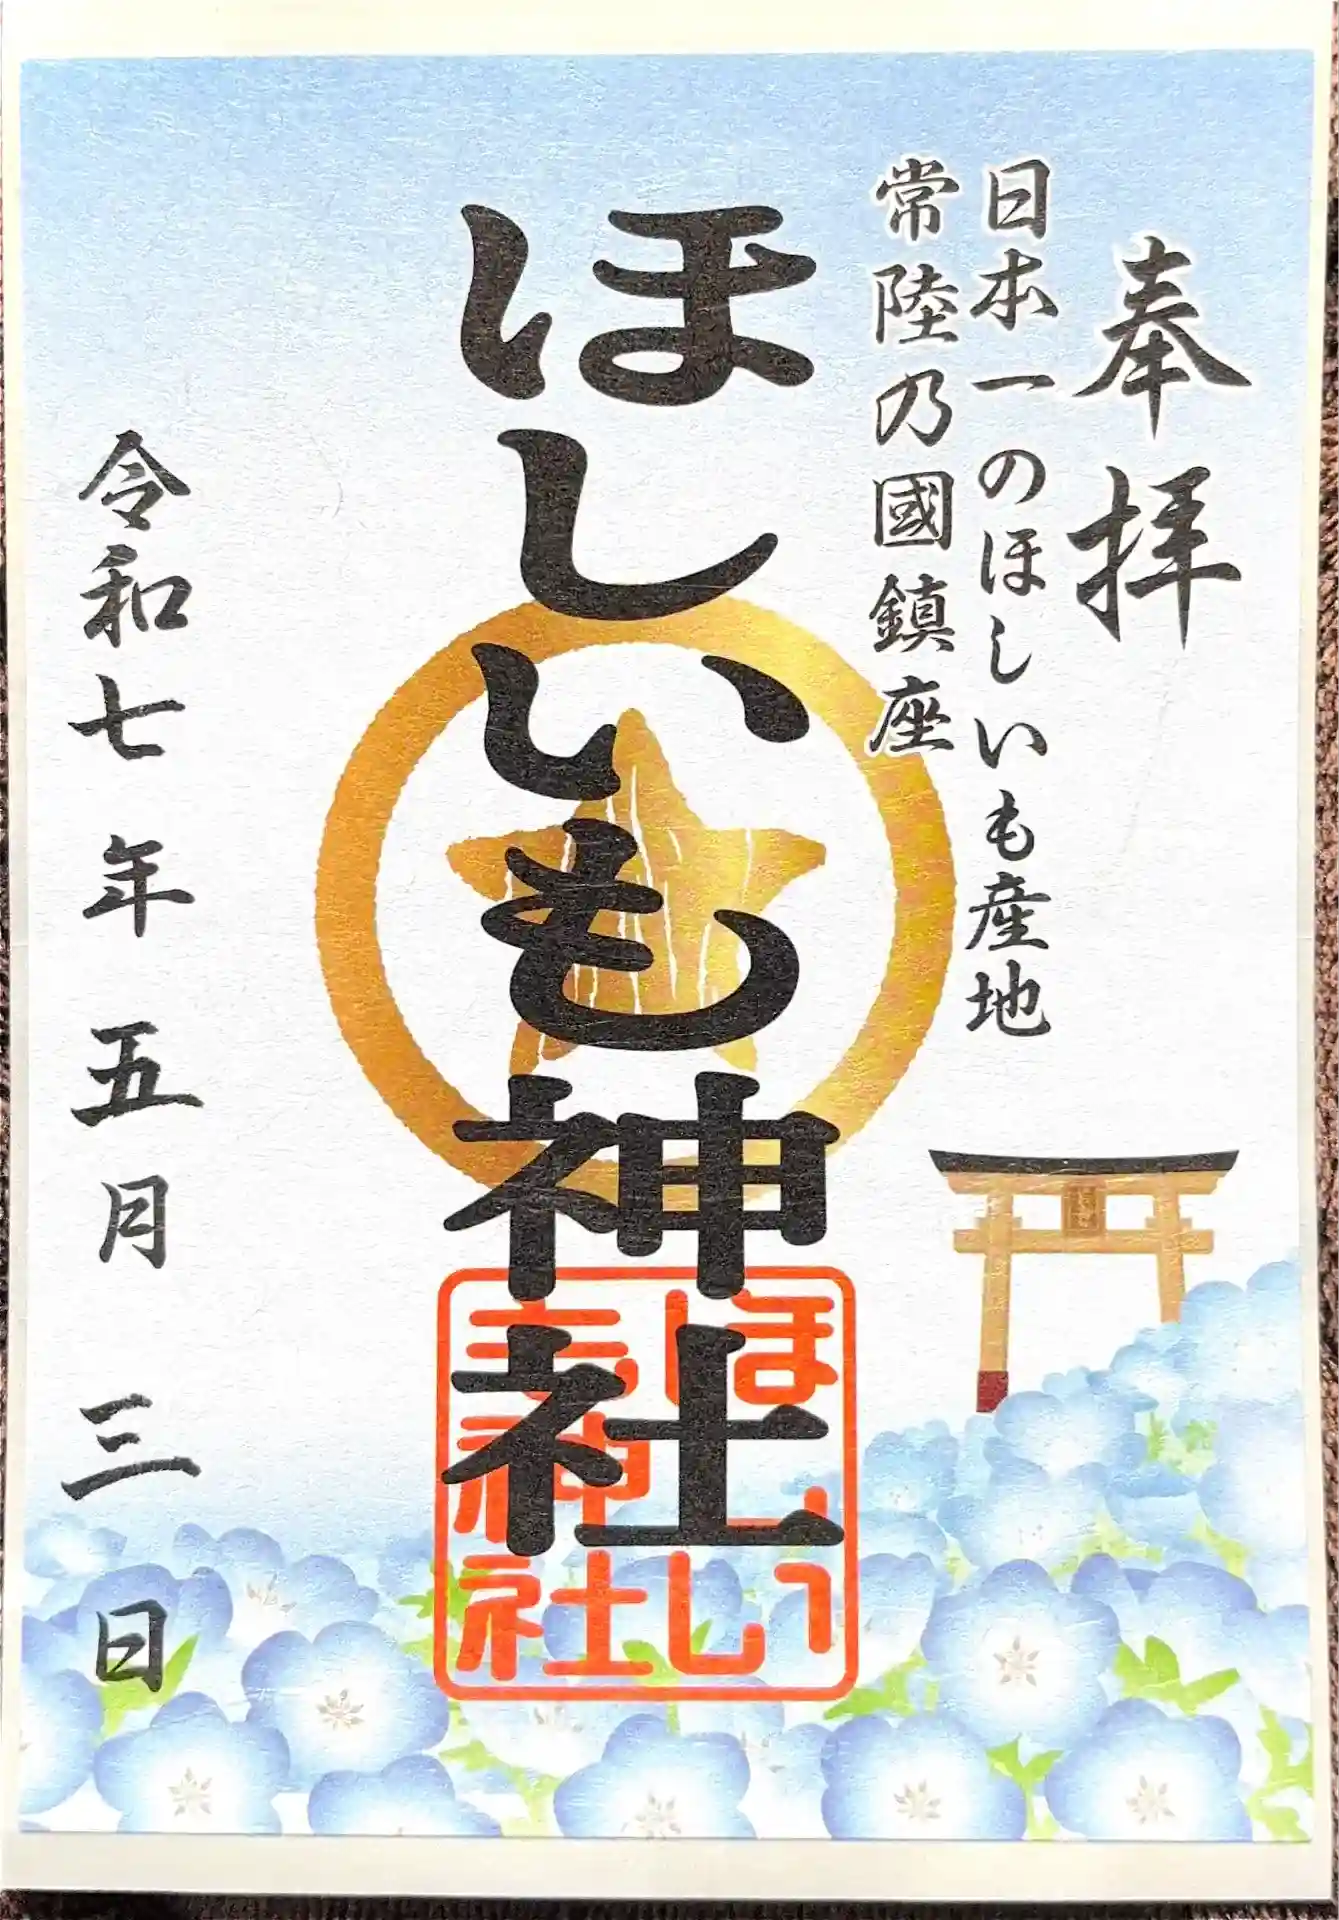 奉拝
日本一のほしいも産地
常陸乃國鎮座
ほしいも神社
ほしい
も神社
令和七年五月三日